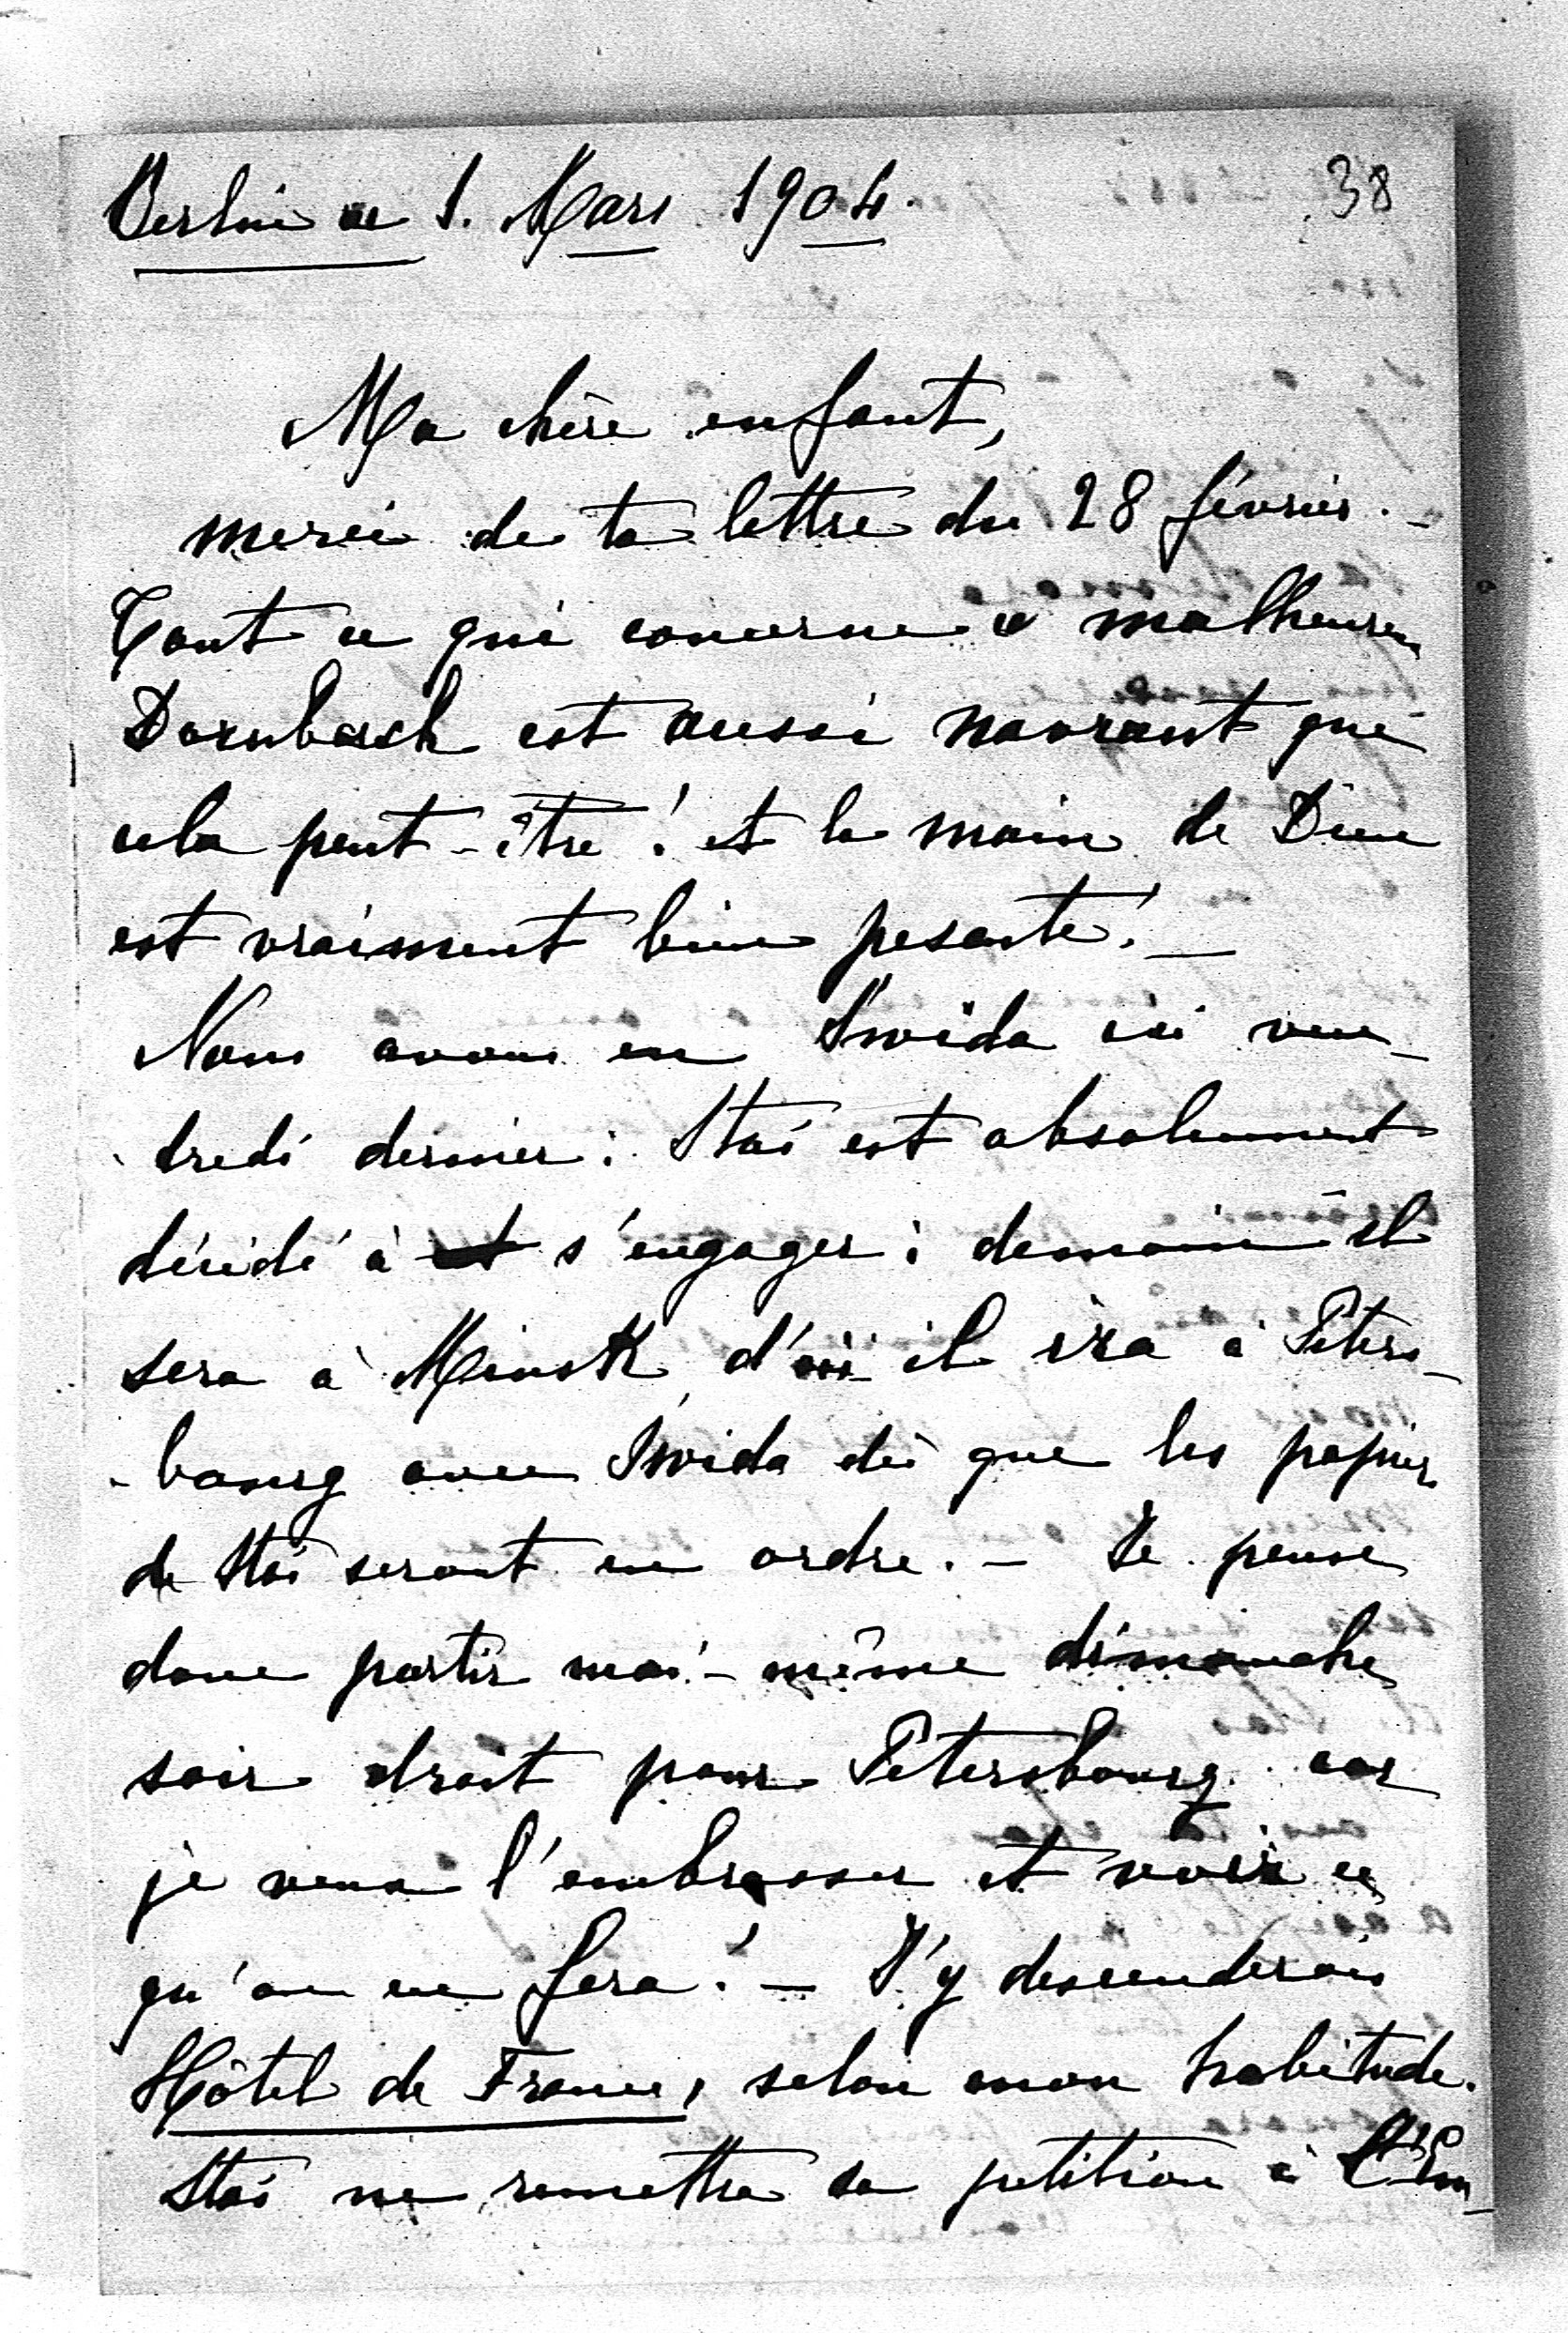 Berlin ce 1. Mars 1904.
38
Ma chère enfant,
merci de ta lettre du 28 février. -
Tout ce qui concerne ce malheureux
Dornbach est aussi navrant que
cela peut-être! et la main de Dieu
est vraiment bien pesante! -
Nous avons eu Swida ici ven-
dredi dernier: Staś est absolument
décidé à s'engager: demain il
sera à Minsk, d'où il ira à Peters-
-bourg avec Swida dès que les papiers
de Staś seront en ordre. - Je pense
donc partir moi-même dimanche
soir droit pour Pétersbourg car
je veux l'embrasser et voir ce
qu'on en fera! - J'y descenderais
Hôtel de France, selon mon habitude.
Staś ne remettra sa petition à l'Em-